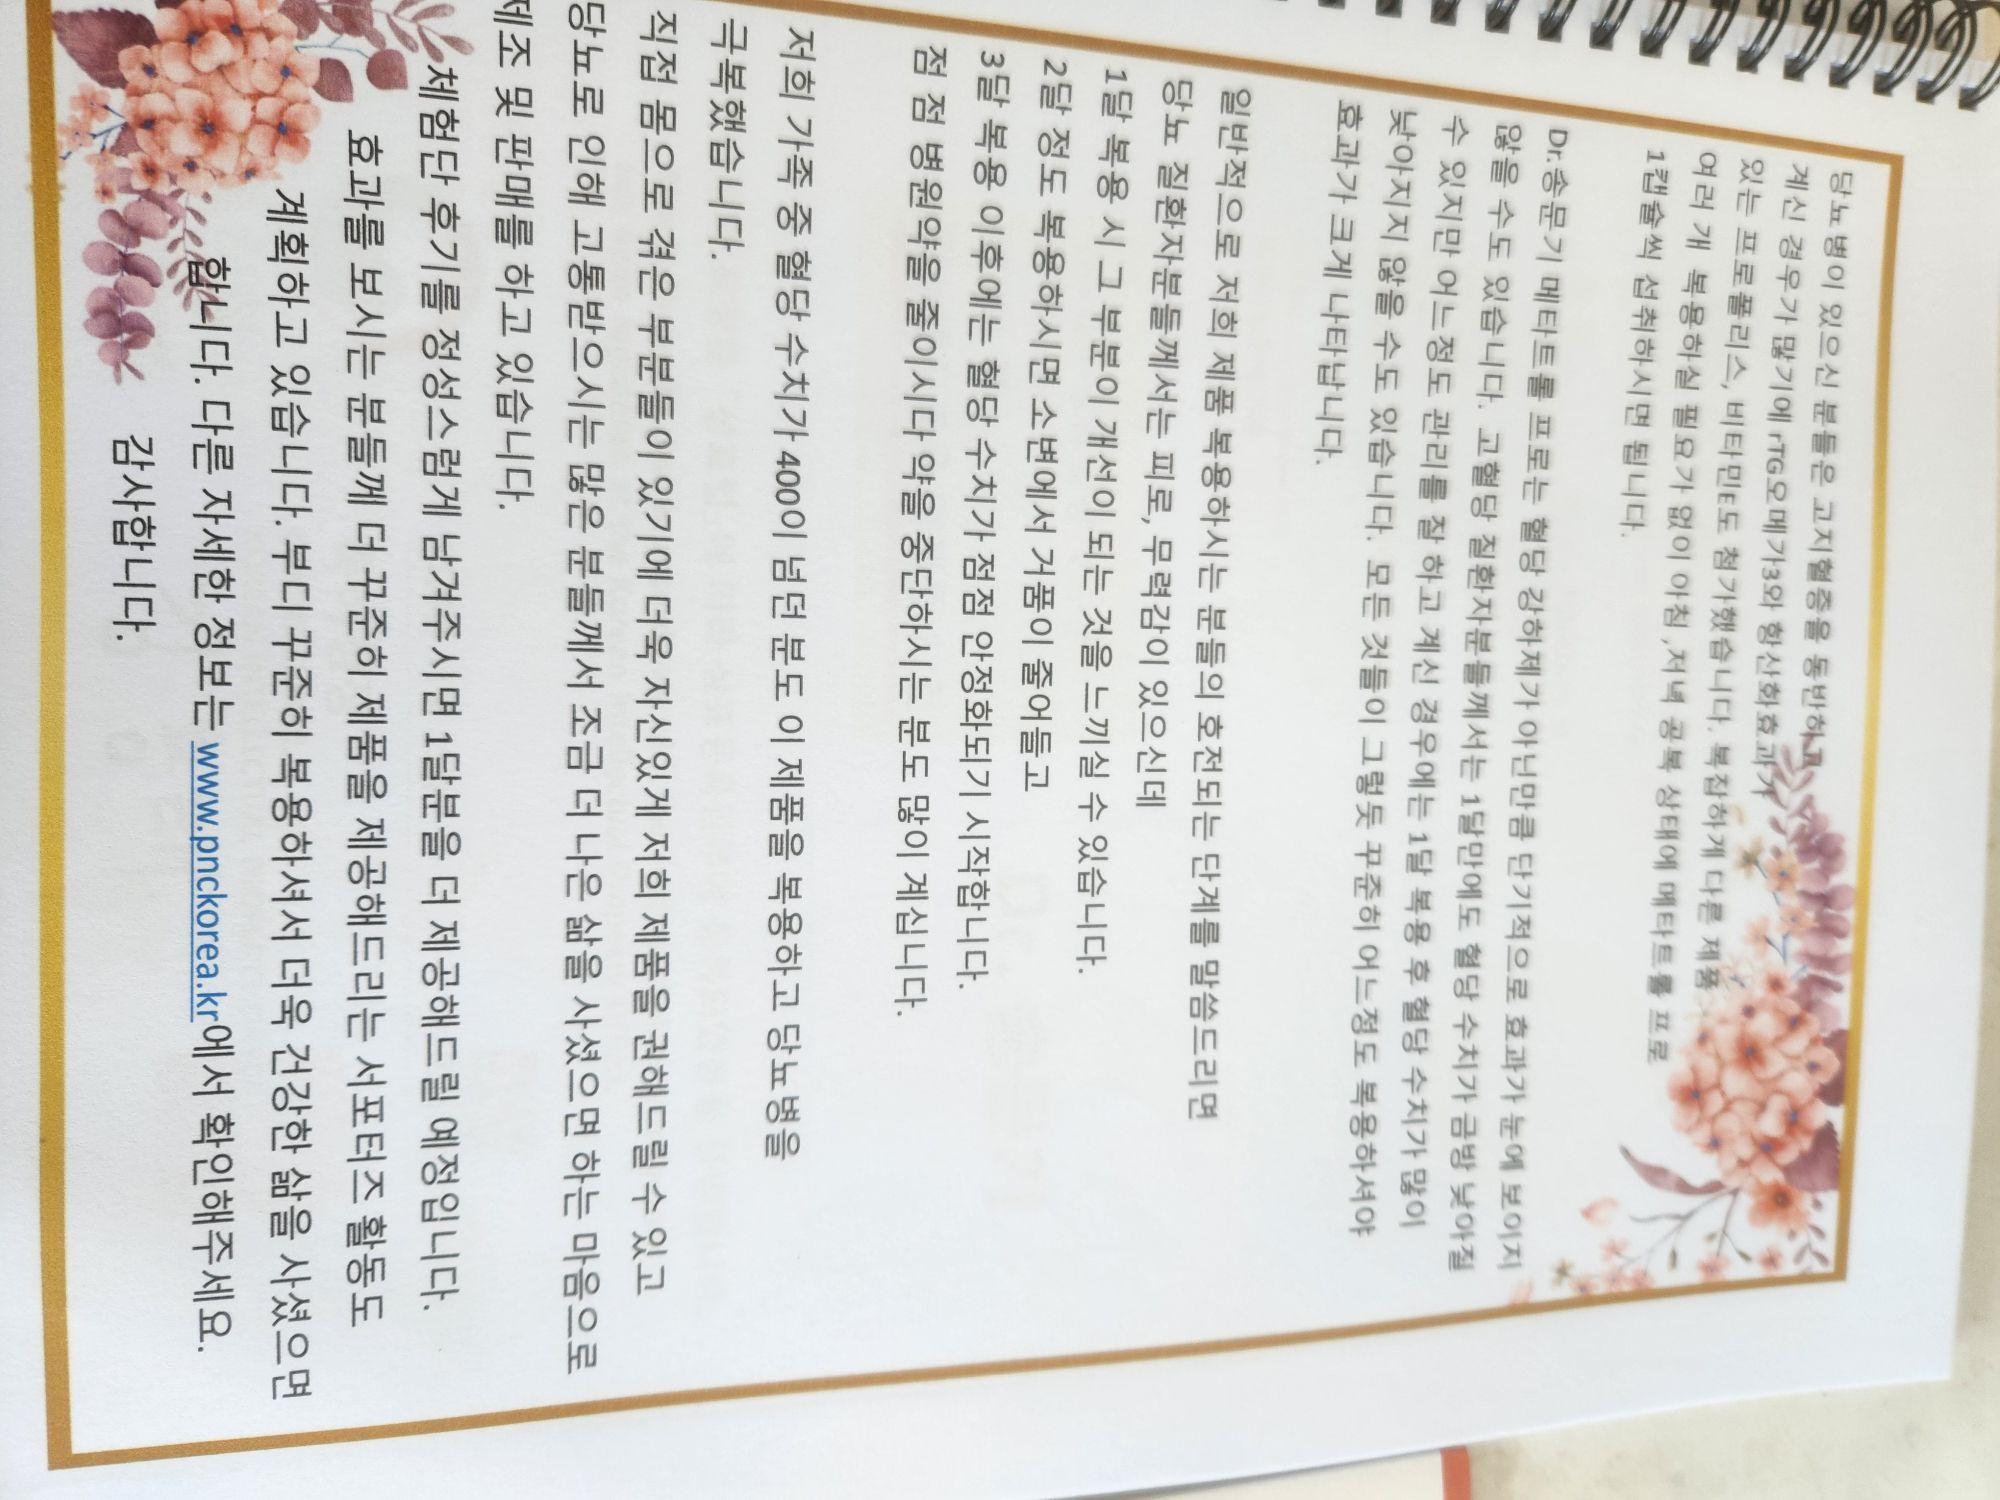 당뇨병이 있으신 분들은 고지혈증을 동반하고
계신 경우가 많기에 rTG오메가3와 항산화효과가
있는 프로폴리스, 비타민E도 첨가했습니다. 복잡하게 다른 제품
여러 개 복용하실 필요가 없이 아침,저녁 공복 상태에 메타트롤 프로
1캡슐씩 섭취하시면 됩니다.
Dr.송문기 메타트롤 프로는 혈당 강하제가 아닌만큼 단기적으로 효과가 눈에 보이지
않을 수도 있습니다. 고혈당 질환자분들께서는 1달만에도 혈당 수치가 금방 낮아질
수 있지만 어느정도 관리를 잘 하고 계신 경우에는 1달 복용 후 혈당 수치가 많이
낮아지지 않을 수도 있습니다. 모든 것들이 그렇듯 꾸준히 어느정도 복용하셔야
효과가 크게 나타납니다.
일반적으로 저희 제품 복용하시는 분들의 호전되는 단계를 말씀드리면
당뇨 질환자분들께서는 피로, 무력감이 있으신데
1달 복용 시 그 부분이 개선이 되는 것을 느끼실 수 있습니다.
2달 정도 복용하시면 소변에서 거품이 줄어들고
3달 복용 이후에는 혈당 수치가 점점 안정화되기 시작합니다.
점 점 병원약을 줄이시다 약을 중단하시는 분도 많이 계십니다.
저희 가족 중 혈당 수치가 400이 넘던 분도 이 제품을 복용하고 당뇨병을
극복했습니다.
직접 몸으로 겪은 부분들이 있기에 더욱 자신있게 저희 제품을 권해드릴 수 있고
당뇨로 인해 고통받으시는 많은 분들께서 조금 더 나은 삶을 사셨으면 하는 마음으로
제조 및 판매를 하고 있습니다.
체험단 후기를 정성스럽게 남겨주시면 1달분을 더 제공해드릴 예정입니다.
효과를 보시는 분들께 더 꾸준히 제품을 제공해드리는 서포터즈 활동도
계획하고 있습니다. 부디 꾸준히 복용하셔서 더욱 건강한 삶을 사셨으면
합니다. 다른 자세한 정보는 www.pnckorea.kr에서 확인해주세요.
감사합니다.